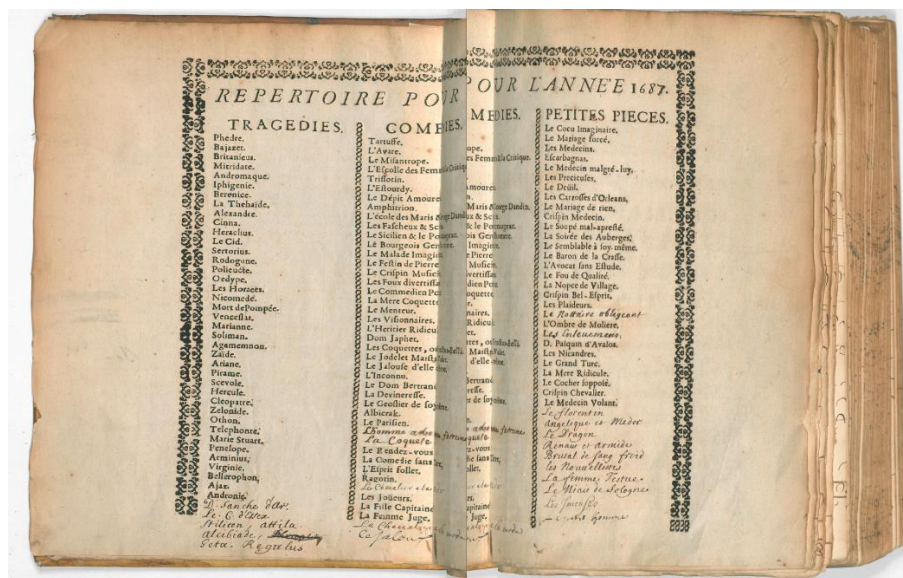 REPERTOIRE POUR L'ANNÉE 1687.
TRAGEDIES.
Phedre.
Bajazet.
Britanicus.
Mitridate.
Andromaque.
Iphigenie.
Berenice.
La Thebaïde.
Alexandre.
Cinna.
Heraclius.
Le Cid.
Sertorius.
Rodogune.
Polieucte.
Oedype.
Les Horaces.
Nicomede.
Mort de Pompée.
Venceslas.
Marianne.
Soliman.
Agamemnon.
Zaïde.
Ariane.
Pirame.
Scevole.
Hercule.
Cleopatre.
Zelonide.
Othon.
Telephonte.
Marie Stuart.
Penelope.
Arminius.
Virginie.
Bellerophon.
Ajax.
Andronic.
D. Sanche d'ar.
Le C. d'Essex
Stilicon, attila
alcibiade,
Geta. Regulus
COMEDIES.
Tartuffe.
L'Avare.
Le Misantrope.
L'Escolle des Femmes
Critique.
Trissotin.
L'Estourdy.
Le Dépit Amoureux
Amphitrion.
L'école des Maris
George Dandin.
Les Fascheux & Sc
Le Sicilien & le
Le Bourgeois Gen
Le Malade Imagin
Le Festin de Pierre
Le Crispin Musici
Les Foux divertissa
Le Commedien Poë
La Mere Coquette
Le Menteur.
Les Visionnaires.
L'Heritier Ridicu
Dom Japhet.
Les Coquettes,
Le Jodelet Maistre
Le Jalouse d'elle
L'Inconnu.
Le Dom Bertrand
La Devineresse.
Le Geoslier de soy
Albicrak.
Le Parisien.
L'homme
La Coquete
Le Rendez-vous
La Comedie sans
L'Esprit follet.
Ragotin.
Les Joüeurs.
La Fille Capitaine
La Femme Juge.
Le Jalou
MEDIES.
PETITES PIECES.
Le Cocu Imaginaire.
Le Mariage forcé.
Les Medecins.
Escarbagnas.
Le Medecin malgré-luy.
Les Precieuses.
Le Deüil.
Les Carosses d'Orleans,
Le Mariage de rien,
Crispin Medecin.
Le Soupé mal-apresté.
La Soirée des Auberges.
Le Semblable à soy-même.
Le Baron de la Crasse.
L'Avocat sans Estude.
Le Fou de Qualité.
La Nopce de Village.
Crispin Bel-Esprit.
Les Plaideurs.
Le Nottaire obligeant
L'Ombre de Moliere.
Les
D. Pasquin d'Avalos.
Les Nicandres.
Le Grand Turc.
La Mere Ridicule.
Le Cocher supposé.
Crispin Chevalier.
Le Medecin Volant.
Le florentin
Angelique et Medor
Le Dragon
Renaud et Armide
Brutal de sang froid
les Nouvellistes
La femme Testue
Le Niais de Sologne